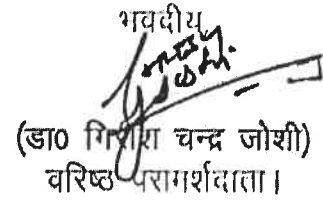 भवदीय,
(डा0 गिरीश चन्द्र जोशी)
वरिष्ठ परामर्शदाता।